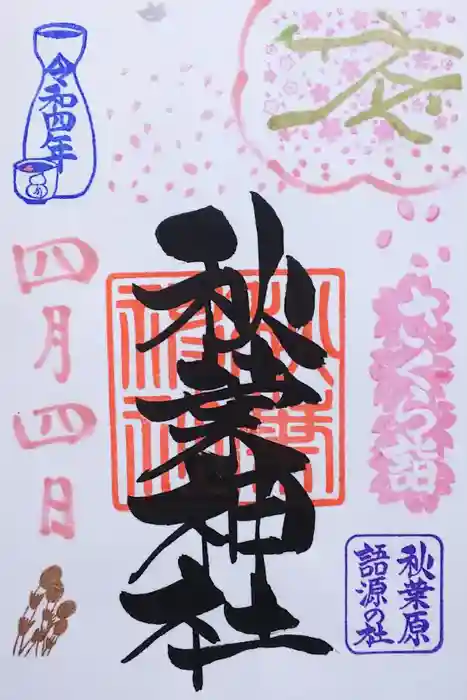 さくら詣
秋葉原
語源の社
秋葉神社
秋葉
神社
令和四年
四月四日